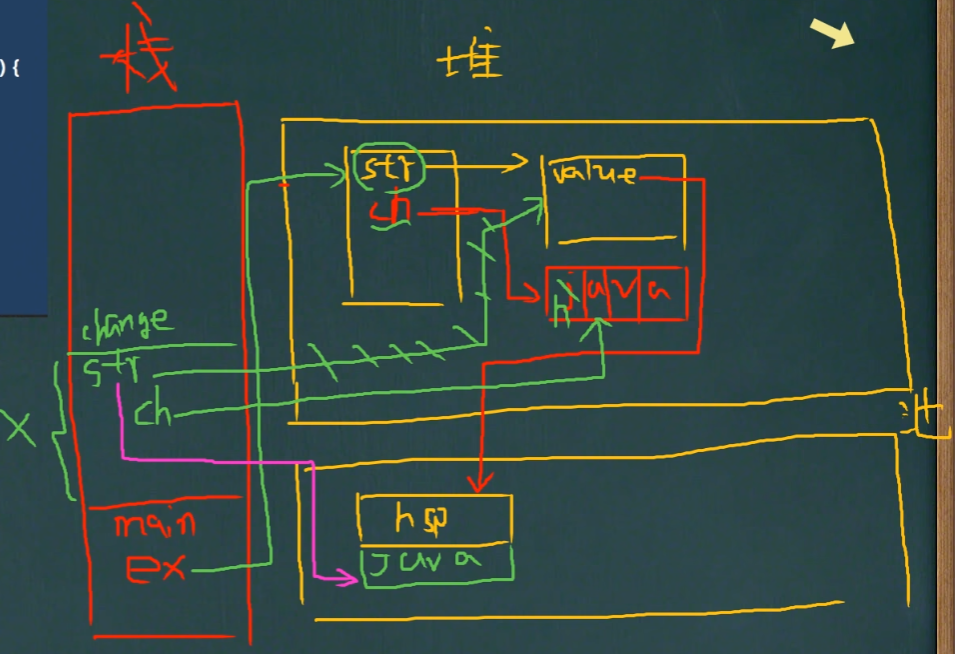 ) {
栈
堆
str
ch
value
h java
change
str
ch
X
main
ex
hsp
java